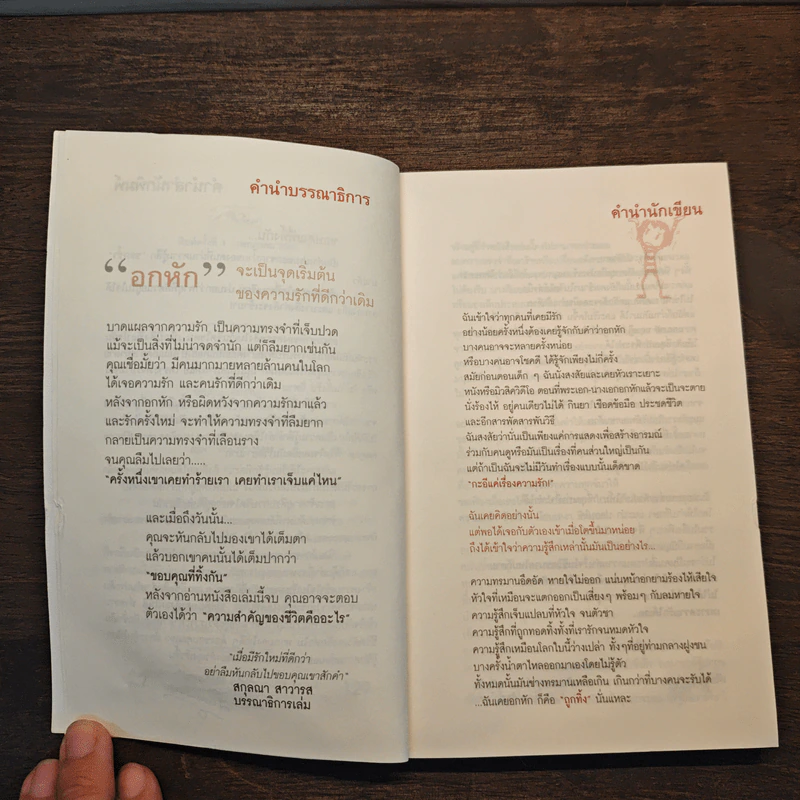 คำนำบรรณาธิการ
“อกหัก” จะเป็นจุดเริ่มต้น
ของความรักที่ดีกว่าเดิม
บาดแผลจากความรัก เป็นความทรงจำที่เจ็บปวด
แม้จะเป็นสิ่งที่ไม่น่าจดจำนัก แต่ก็ลืมยากเช่นกัน
คุณเชื่อมั้ยว่า มีคนมากมายหลายล้านคนในโลก
ได้เจอความรัก และคนรักที่ดีกว่าเดิม
หลังจากอกหัก หรือผิดหวังจากความรักมาแล้ว
และรักครั้งใหม่ จะทำให้ความทรงจำที่ลืมยาก
กลายเป็นความทรงจำที่เลือนราง
จนคุณลืมไปเลยว่า.....,
"ครั้งหนึ่งเขาเคยทำร้ายเรา เคยทำเราเจ็บแค่ไหน"
และเมื่อถึงวันนั้น...
คุณจะหันกลับไปมองเขาได้เต็มตา
แล้วบอกเขาคนนั้นได้เต็มปากว่า
"ขอบคุณที่ทิ้งกัน"
หลังจากอ่านหนังสือเล่มนี้จบ คุณอาจจะตอบ
ตัวเองได้ว่า "ความสำคัญของชีวิตคืออะไร"
"เมื่อมีรักใหม่ที่ดีกว่า
อย่าลืมหันกลับไปขอบคุณเขาสักคำ"
สกุลณา สาวารส
บรรณาธิการเล่ม
คำนำนักเขียน
ฉันเข้าใจว่าทุกคนที่เคยมีรัก
อย่างน้อยครั้งหนึ่งต้องเคยรู้จักกับคำว่าอกหัก
บางคนอาจจะหลายครั้งหน่อย
หรือบางคนอาจโชคดี ได้รู้จักเพียงไม่กี่ครั้ง
สมัยก่อนตอนเด็ก ๆ ฉันนั่งสงสัยและเคยหัวเราะเยาะ
หนังหรือมิวสิควิดีโอ ตอนที่พระเอก-นางเอกอกหักแล้วจะเป็นจะตาย
นั่งร้องไห้ อยู่คนเดียวไม่ได้ กินยา เชือดข้อมือ ประชดชีวิต
และอีกสารพัดสารพันวิธี
ฉันสงสัยว่านั่นเป็นเพียงแค่การแสดงเพื่อสร้างอารมณ์
ร่วมกับคนดูหรือมันเป็นเรื่องที่คนส่วนใหญ่เป็นกัน
แต่ถ้าเป็นฉันจะไม่มีวันทำเรื่องแบบนั้นเด็ดขาด
"กะอีแค่เรื่องความรัก!"
ฉันเคยคิดอย่างนั้น
แต่พอได้เจอกับตัวเองเข้าเมื่อโตขึ้นมาหน่อย
ถึงได้เข้าใจว่าความรู้สึกเหล่านั้นมันเป็นอย่างไร...
ความทรมานอึดอัด หายใจไม่ออก แน่นหน้าอกยามร้องไห้เสียใจ
หัวใจที่เหมือนจะแตกออกเป็นเสี่ยงๆ พร้อมๆ กับลมหายใจ
ความรู้สึกเจ็บแปลบที่หัวใจ จนตัวชา
ความรู้สึกที่ถูกทอดทิ้งทั้งที่เรารักจนหมดหัวใจ
ความรู้สึกเหมือนโลกใบนี้ว่างเปล่า ทั้งๆที่อยู่ท่ามกลางฝูงชน
บางครั้งน้ำตาไหลออกมาเองโดยไม่รู้ตัว
ทั้งหมดนั้นมันช่างทรมานเหลือเกิน เกินกว่าที่บางคนจะรับได้
...ฉันเคยอกหัก ก็คือ "ถูกทิ้ง" นั่นแหละ